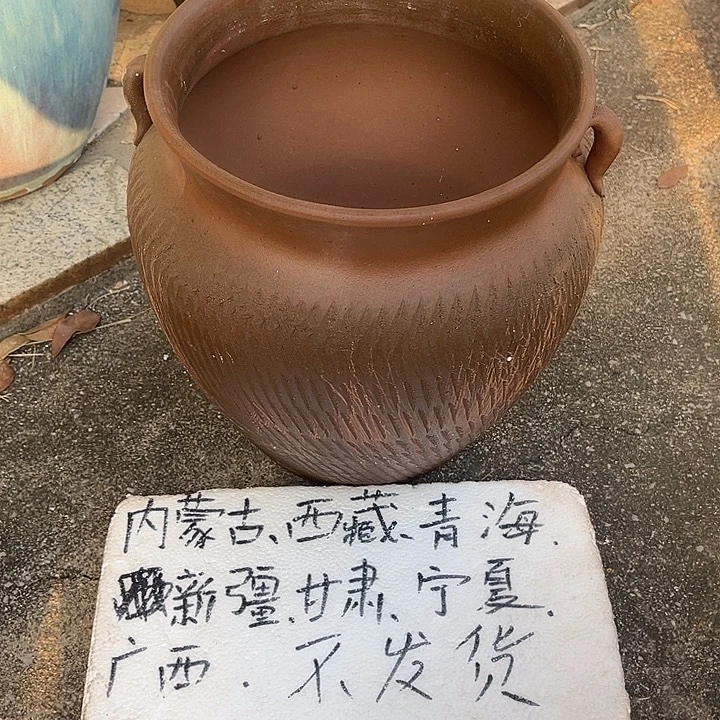 内蒙古、西藏、青海.
新疆.甘肃、宁夏.
广西.不发货